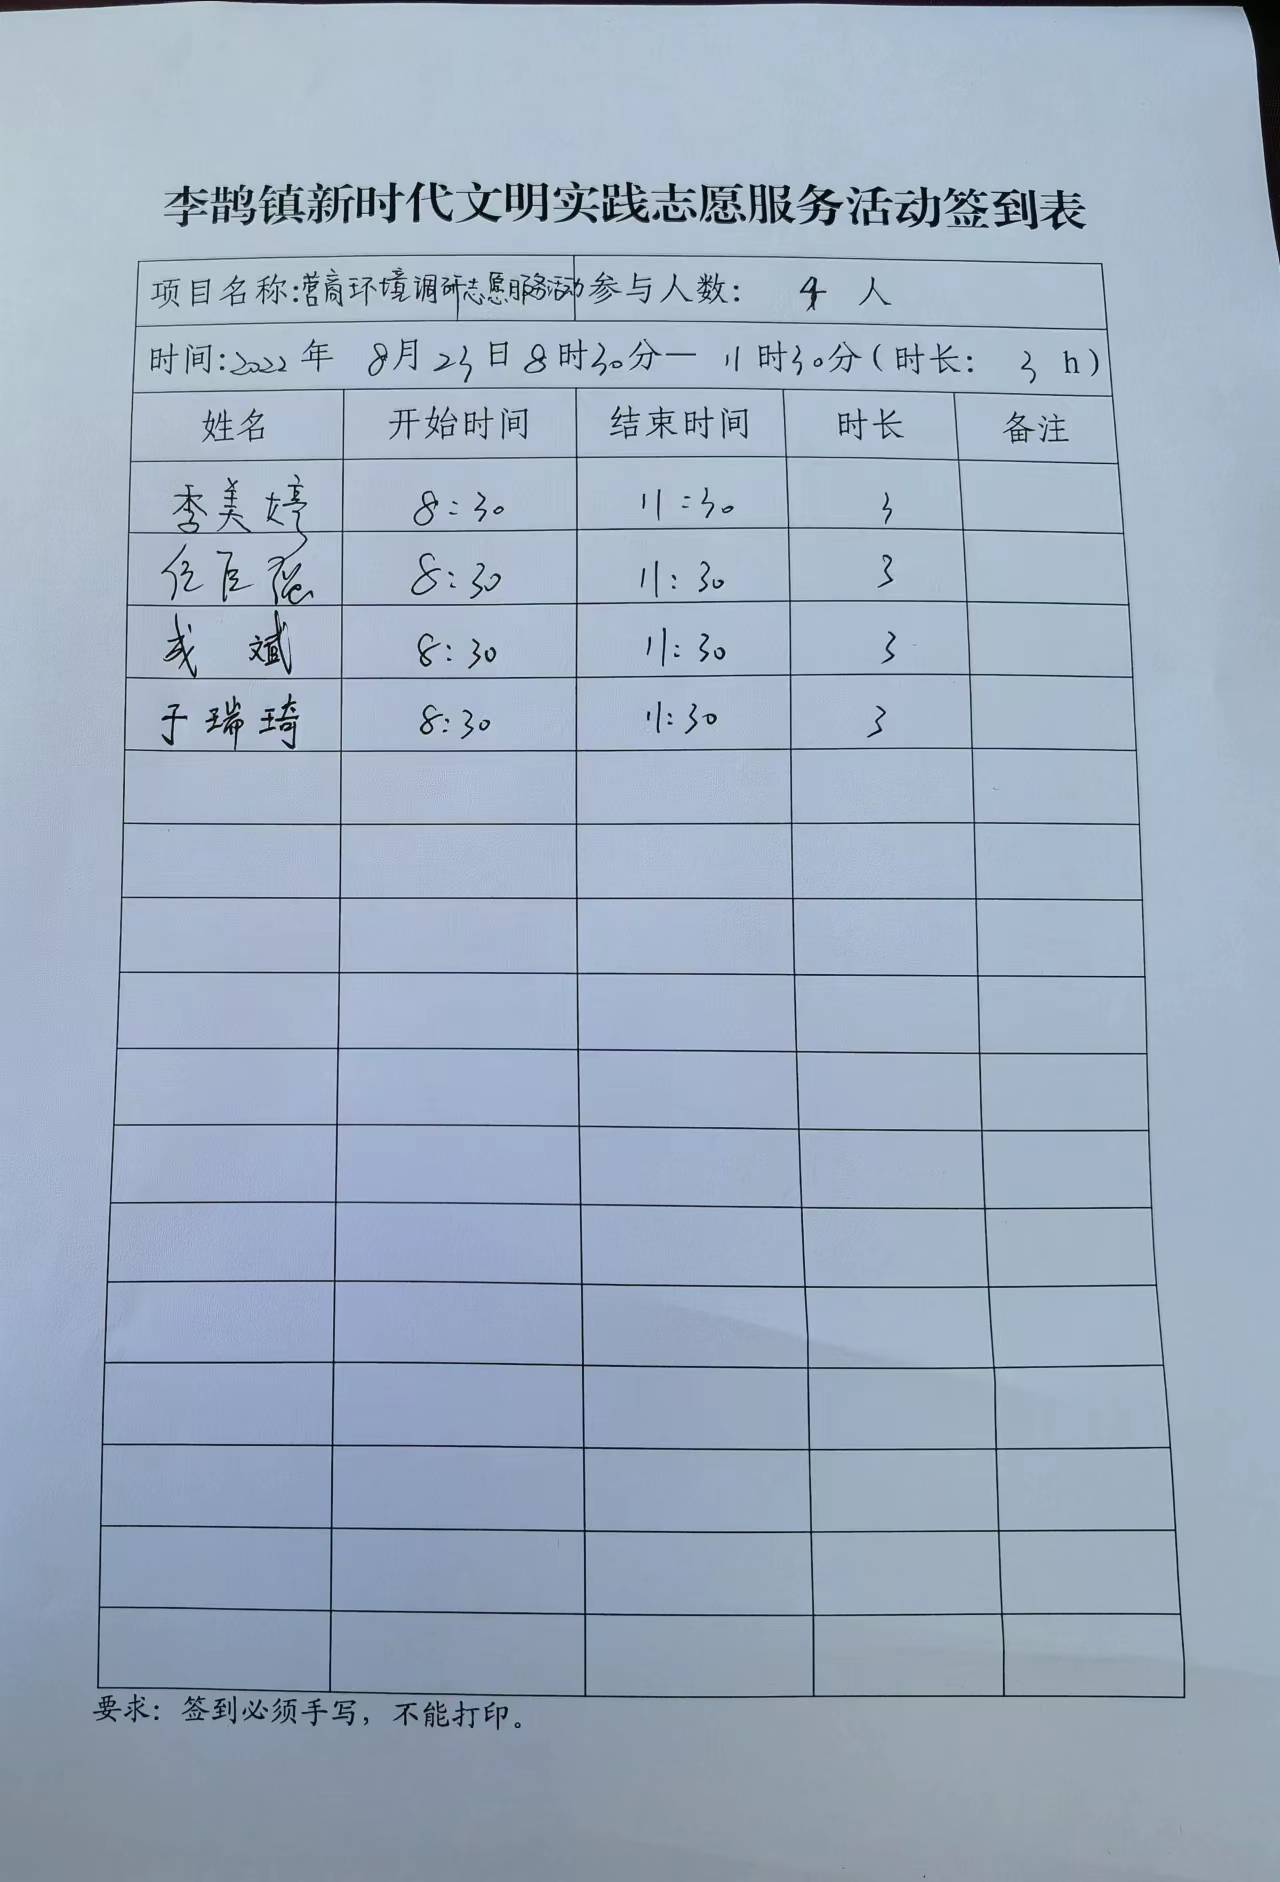 李鹊镇新时代文明实践志愿服务活动签到表
项目名称:营商环境调研志愿服务活动 参与人数: 4 人
时间:2022年 8月23日8时30分— 11时30分(时长: 3 h)
姓名 开始时间 结束时间 时长 备注
李美婷 8:30 11:30 3
任 8:30 11:30 3
斌 8:30 11:30 3
于瑞琦 8:30 11:30 3
要求: 签到必须手写, 不能打印。